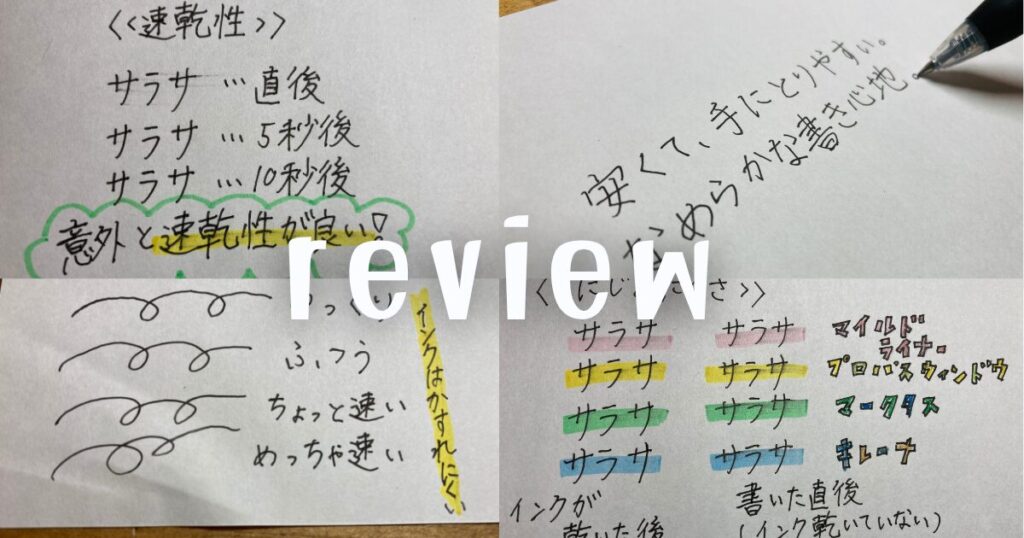 <<速乾性>>
サラサ…直後
サラサ…5秒後
サラサ…10秒後
意外と速乾性が良い!
安くて、手にとりやすい。
なめらかな書き心地。
review
ふつう
ちょっと速い
めっちゃ速い
インクはかすれにくい
サラサ サラサ マイルド
ライナー
サラサ サラサ プロパスウィンドウ
サラサ サラサ マークタス
サラサ サラサ キレーナ
インクが
乾いた後
書いた直後
(インク乾いていない)